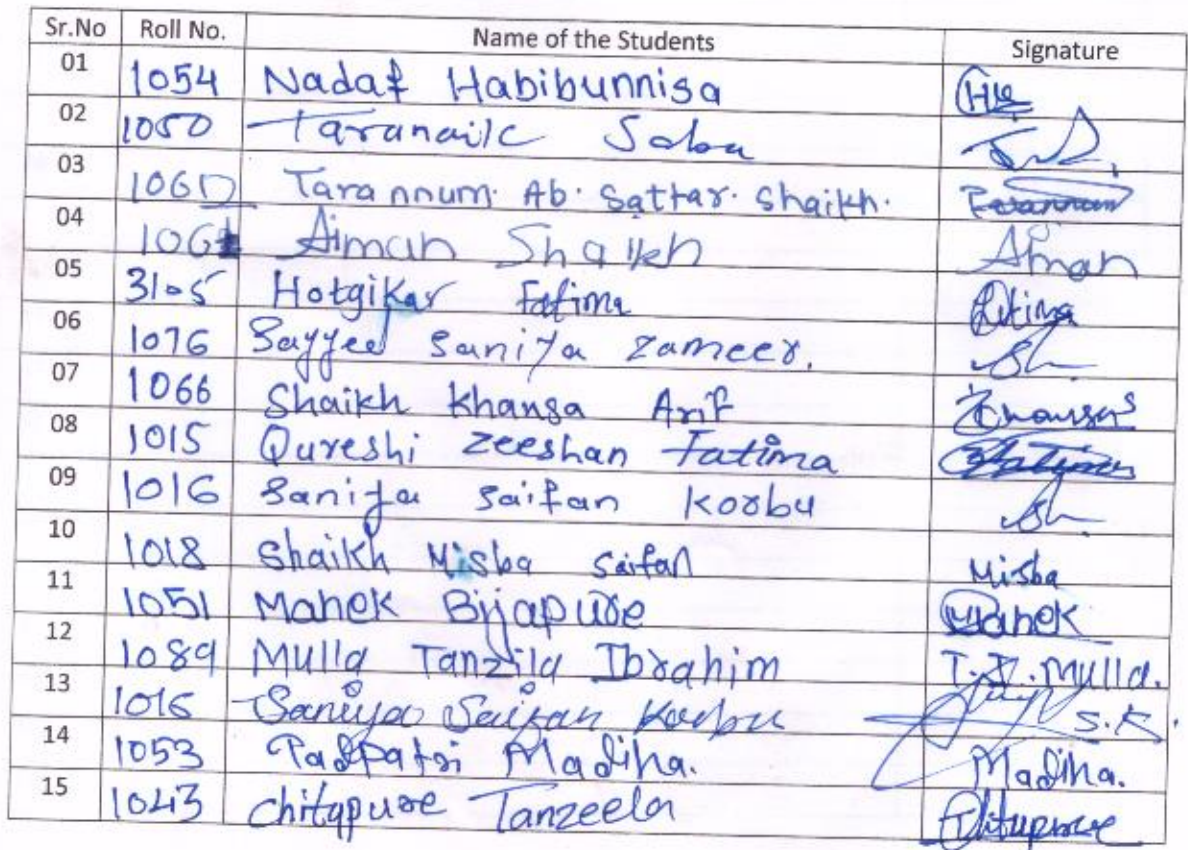 Sr.No Roll No. Name of the Students Signature
01 1054 Nadaf Habibunnisa
02 1050 Taranaik Saba
03 1060 Tarannum. Ab. Sattar. Shaikh. Tarannum
04 1061 Aiman Shaikh Aiman
05 3105 Hotgikar Fatima Fatima
06 1076 Sayyed Saniya Zameer.
07 1066 Shaikh Khansa Arif Khansa S
08 1015 Qureshi Zeeshan Fatima Fatima
09 1016 Saniya Saifan Korbu
10 1018 Shaikh Misba Saifan Misba
11 1051 Mahek Bijapure Mahek
12 1089 Mulla Tanzila Ibrahim T.I. Mulla.
13 1016 Saniya Saifan Korbu S.K.
14 1053 Padpatri Madiha. Madiha.
15 1043 Chitapure Tanzeela Chitapure